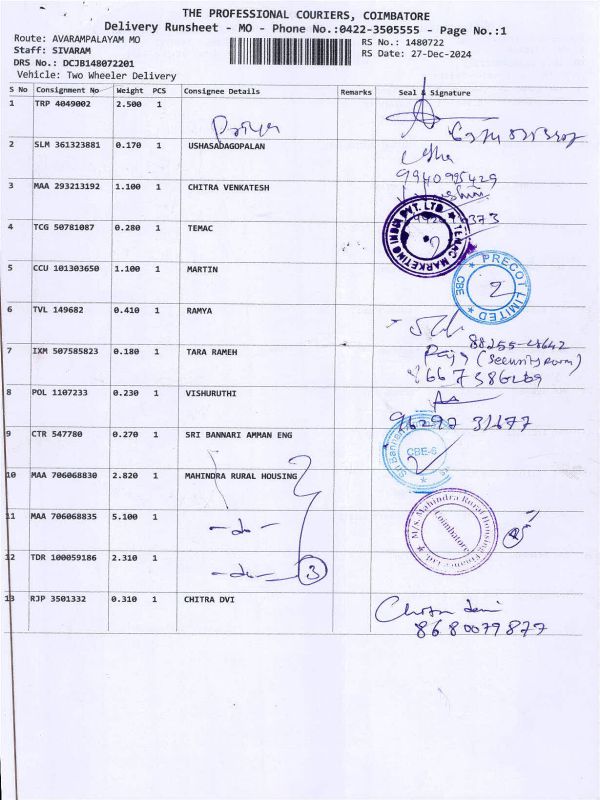 THE PROFESSIONAL COURIERS, COIMBATORE
Delivery Runsheet - MO - Phone No.:0422-3505555 - Page No.:1
Route: AVARAMPALAYAM MO RS No.: 1480722
Staff: SIVARAM RS Date: 27-Dec-2024
DRS No.: DCJB148072201
Vehicle: Two Wheeler Delivery
S No Consignment No Weight PCS Consignee Details Remarks Seal & Signature
1 TRP 4049002 2.500 1 Priya
2 SLM 361323881 0.170 1 USHASADAGOPALAN Usha
9940995429
3 MAA 293213192 1.100 1 CHITRA VENKATESH
4 TCG 50781087 0.280 1 TEMAC TEMAC MARKETING INDIA PVT. LTD.
5 CCU 101303650 1.100 1 MARTIN PRECOT LIMITED CBE
6 TVL 149682 0.410 1 RAMYA
88255-48642
7 IXM 507585823 0.180 1 TARA RAMEH (Security room)
8 POL 1107233 0.230 1 VISHURUTHI
96292 31677
9 CTR 547780 0.270 1 SRI BANNARI AMMAN ENG Sri Bannari CBE-6
10 MAA 706068830 2.820 1 MAHINDRA RURAL HOUSING
11 MAA 706068835 5.100 1 -do- M/S. Mahindra Rural Housing Finance Ltd. Coimbatore
12 TDR 100059186 2.310 1 -do- 3
13 RJP 3501332 0.310 1 CHITRA DVI
8680079877